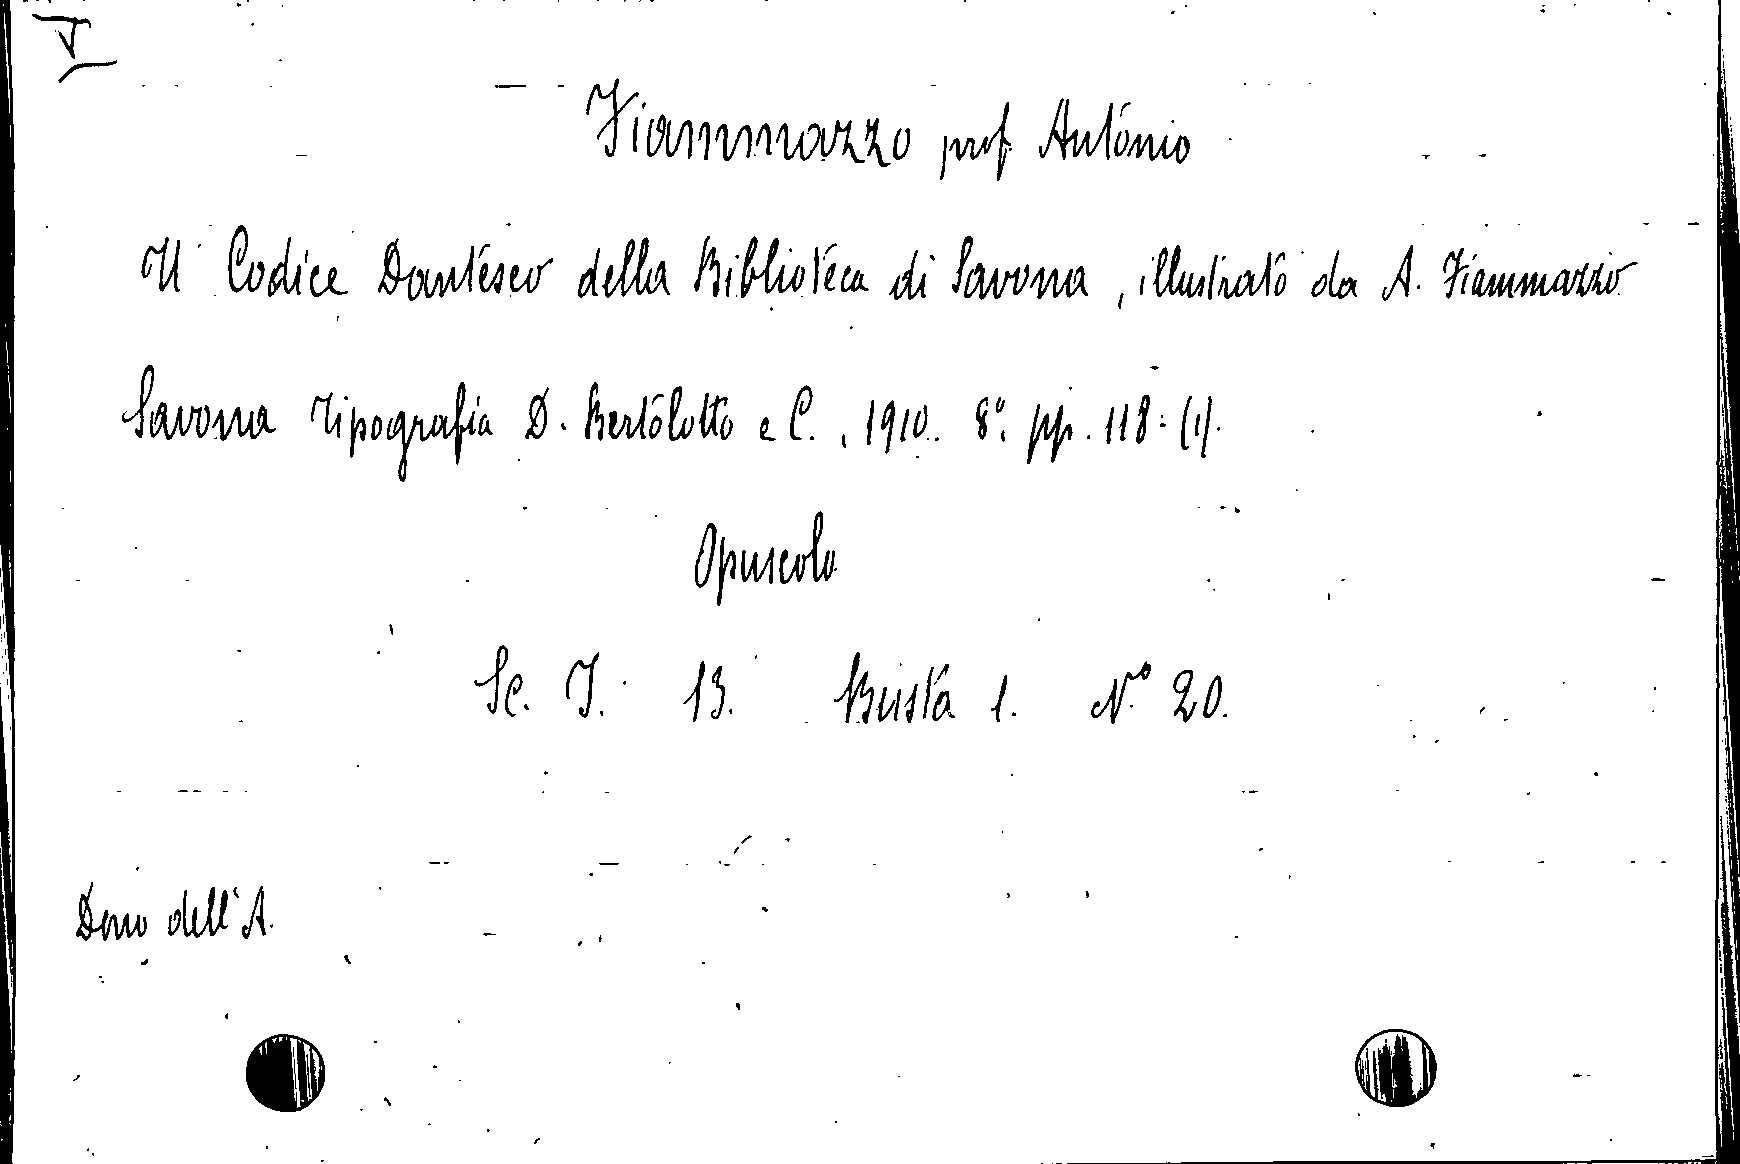 Fiammazzo prof Antonio
Il Codice Dantesco della Biblioteca di Savona, illustrato da A. Fiammazzo
Savona Tipografia D. Bertolotto e C., 1910. 8°. pp. 118-(1).
Opuscolo
Sc. I. 13. Busta 1. N.° 20.
Dono dell'A.